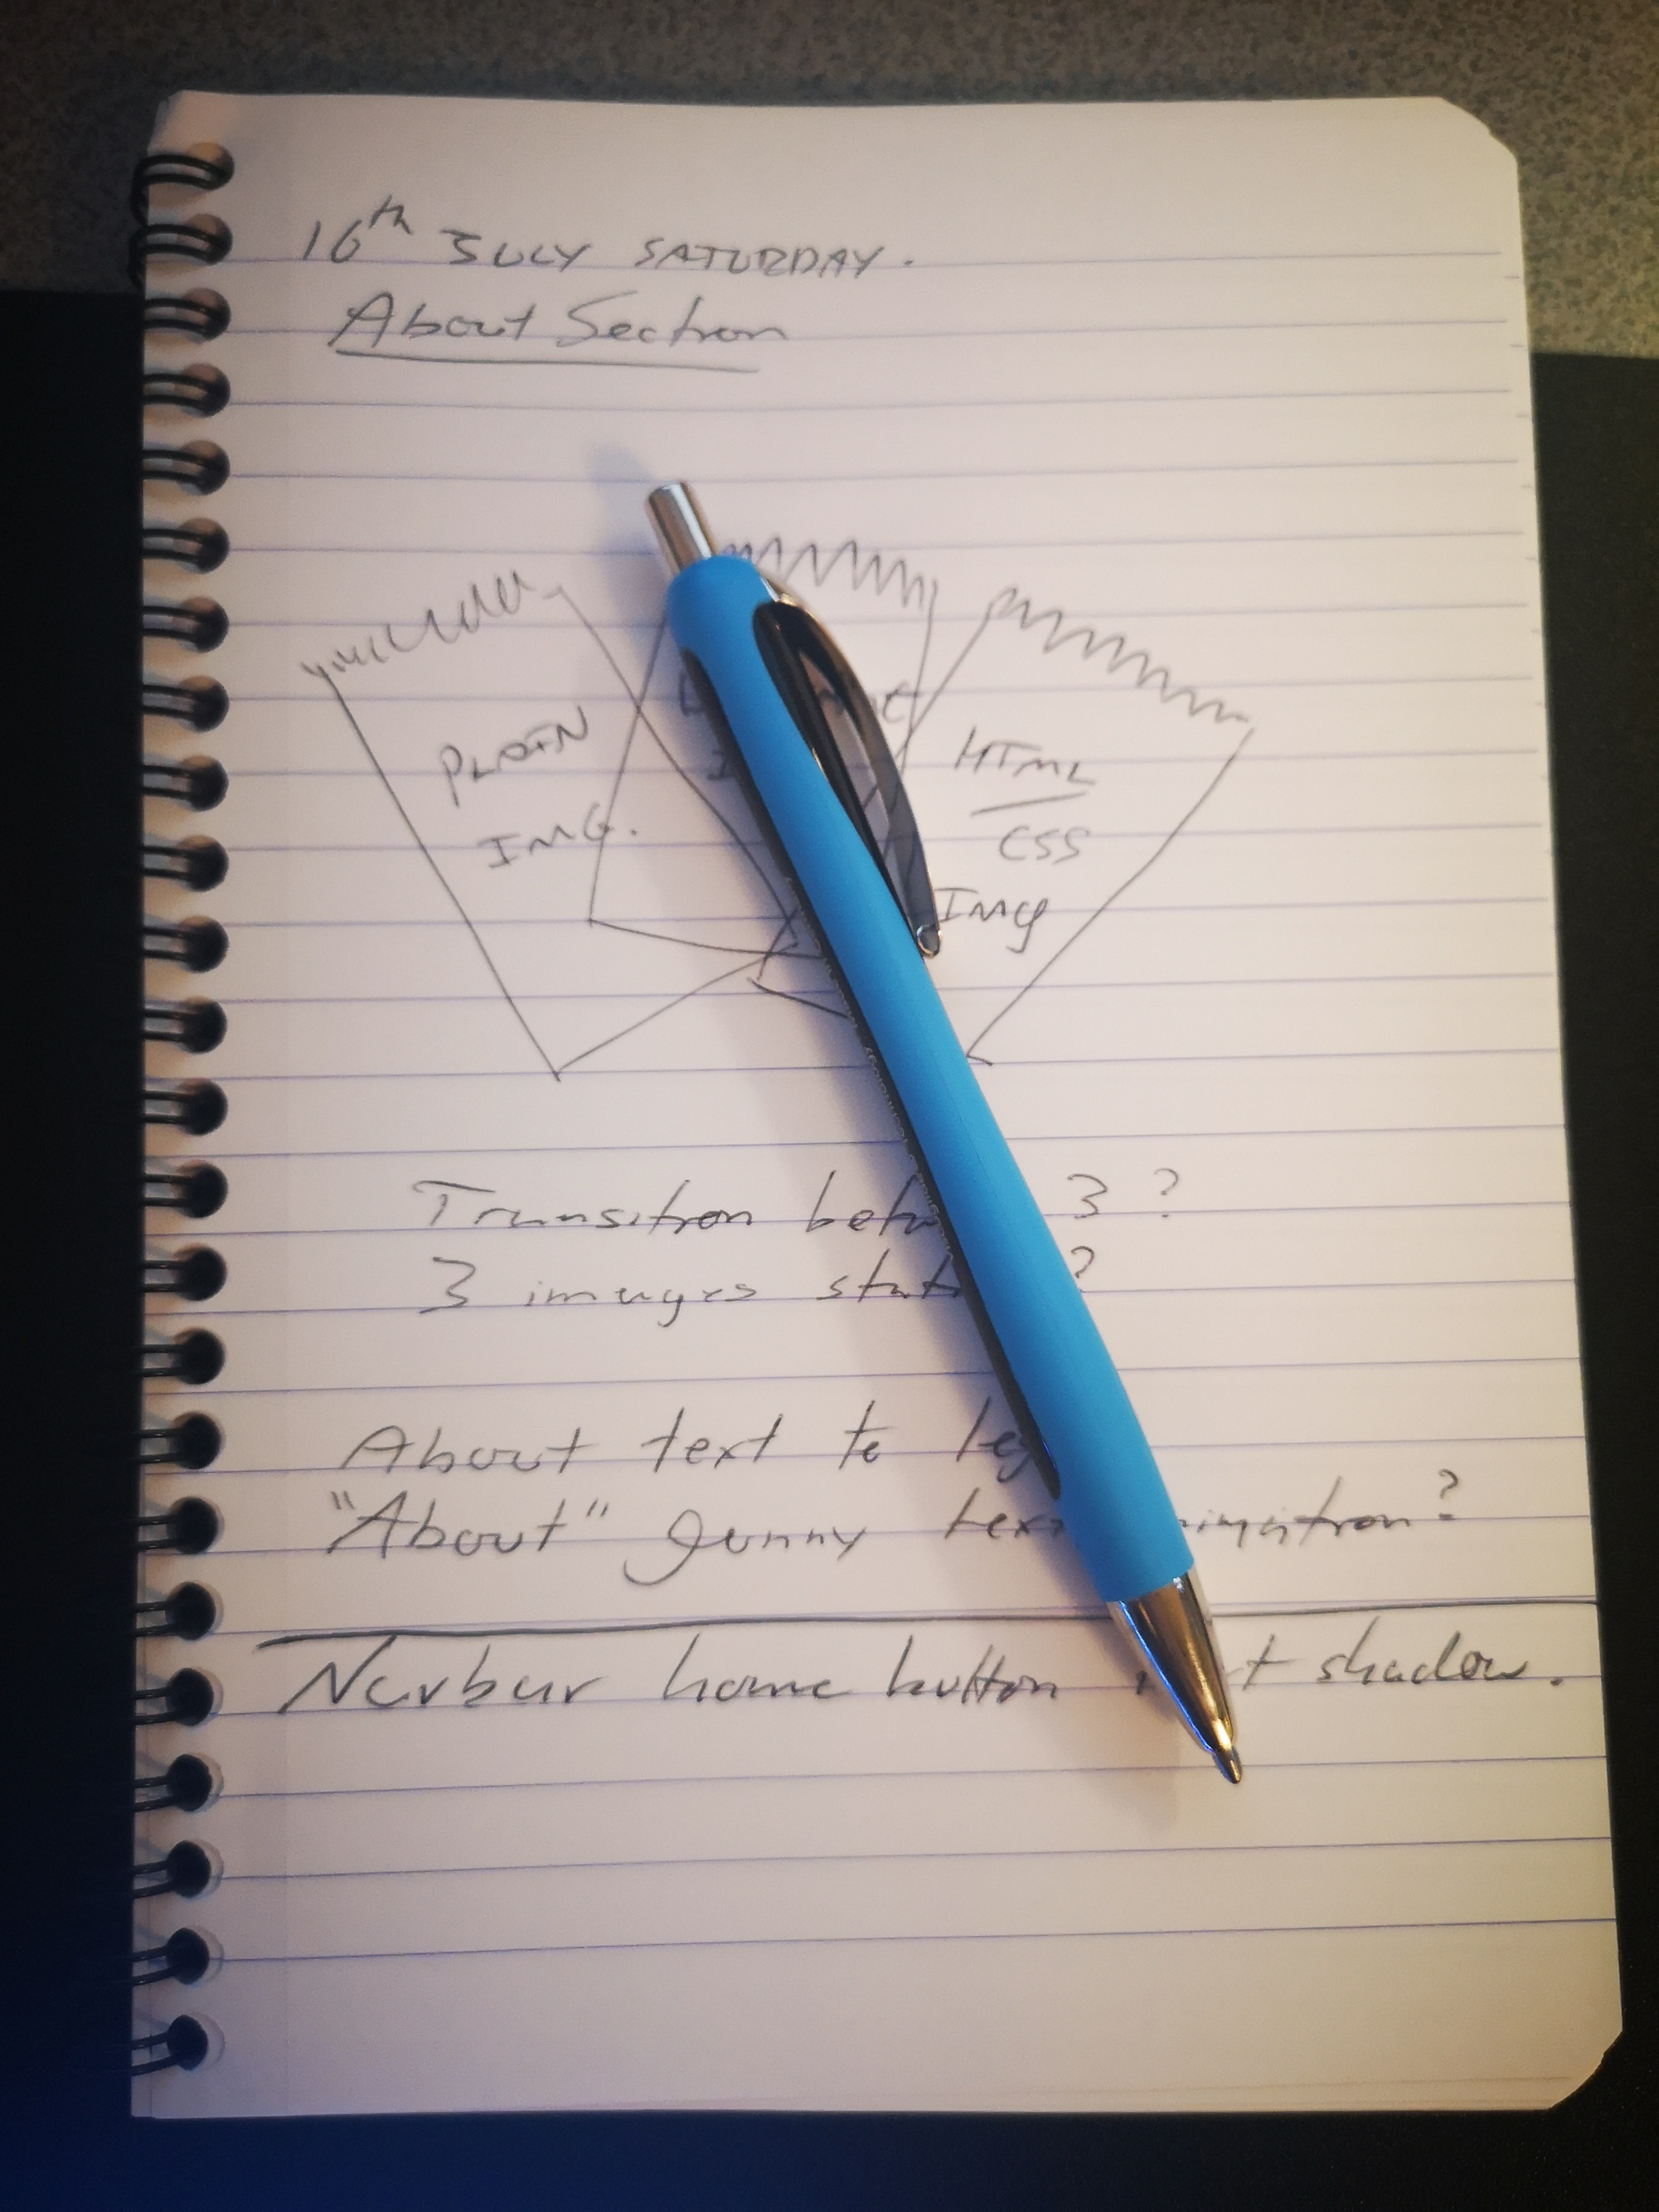 16th JULY SATURDAY.
About Section
PLAIN
IMG.
HTML
CSS
Img
Transition 3 ?
3 images ?
About text to
"About" text
Navbar home button shadow.